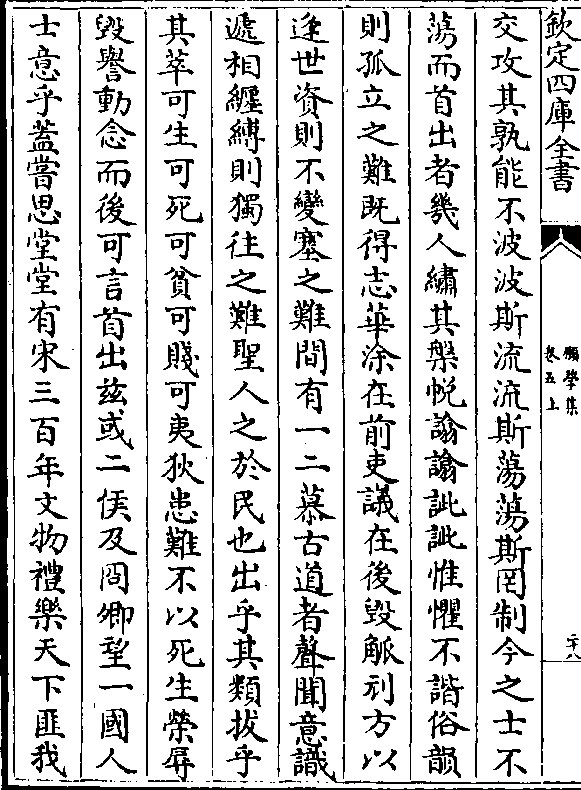 欽定四庫全書
願學集
卷五上
二十八
交攻其孰能不波波斯流流斯蕩蕩斯罔制今之士不
蕩而首出者幾人繡其槃帨譾譾訿訿惟懼不諧俗韻
則孤立之難既得志華涂在前吏議在後毀觚刓方以
逢世資則不變塞之難間有一二慕古道者聲聞意識
遞相纏縛則獨往之難聖人之於民也出乎其類拔乎
其萃可生可死可貧可賤可夷狄患難不以死生榮辱
毀譽動念而後可言首出兹或二侯及同卿望一國人
士意乎蓋嘗思堂堂有宋三百年文物禮樂天下匪我